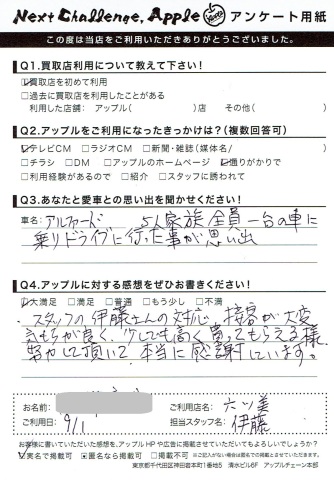 Next Challenge, Apple アンケート用紙
この度は当店をご利用いただきありがとうございました。
Q1.買取店利用について教えて下さい!
☑買取店を初めて利用
□過去に買取店を利用したことがある
利用した店舗: アップル( )店 その他( )
Q2.アップルをご利用になったきっかけは?(複数回答可)
☑テレビCM □ラジオCM □新聞・雑誌(媒体名/ )
□チラシ □DM □アップルのホームページ ☑通りがかりで
□利用経験があるので □紹介 □スタッフに誘われて
Q3.あなたと愛車との思い出を聞かせください!
車名: アルファード 5人家族全員一台の車に
乗りドライブに行った事が思い出
Q4.アップルに対する感想をぜひお書きください!
☑大満足 □満足 □普通 □もう少し □不満
スタッフの伊藤さんの対応、接客が大変
気もちが良く、少しでも高く買ってもらえる様
努力して頂いて本当に感謝しています。
お名前:
ご利用店名: 六ツ美
ご利用日: 9/1
担当スタッフ名: 伊藤
お客様に書いていただいた感想を、アップルHPや広告に掲載させていただいてもよろしいでしょうか?
☑実名で掲載可 □匿名なら掲載可 □掲載不可 ※ご記入がない場合は匿名での掲載とさせていただきます。
東京都千代田区神田岩本町1番地5 清水ビル6F アップルチェーン本部